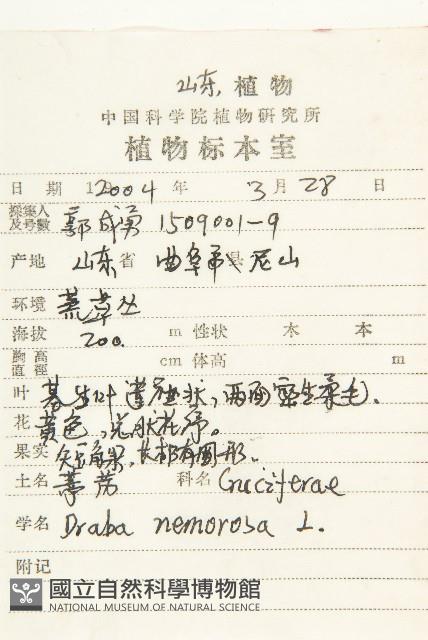 山东, 植物
中国科学院植物研究所
植物标本室
日 期 1 2004 年 3 月 28 日
採集人及号数 郭成勇 1509001-9
产地 山东 省 曲阜市 县 尼山
环境 荒草丛
海拔 200. m 性状 木 本
胸高直徑 cm 体高 m
叶 基生叶莲座状, 两面密生柔毛.
花 黄色, 总状花序。
果实 短角果, 长椭圆形.
土名 葶苈 科名 Cruciferae
学名 Draba nemorosa L.
附记
國立自然科學博物館
NATIONAL MUSEUM OF NATURAL SCIENCE